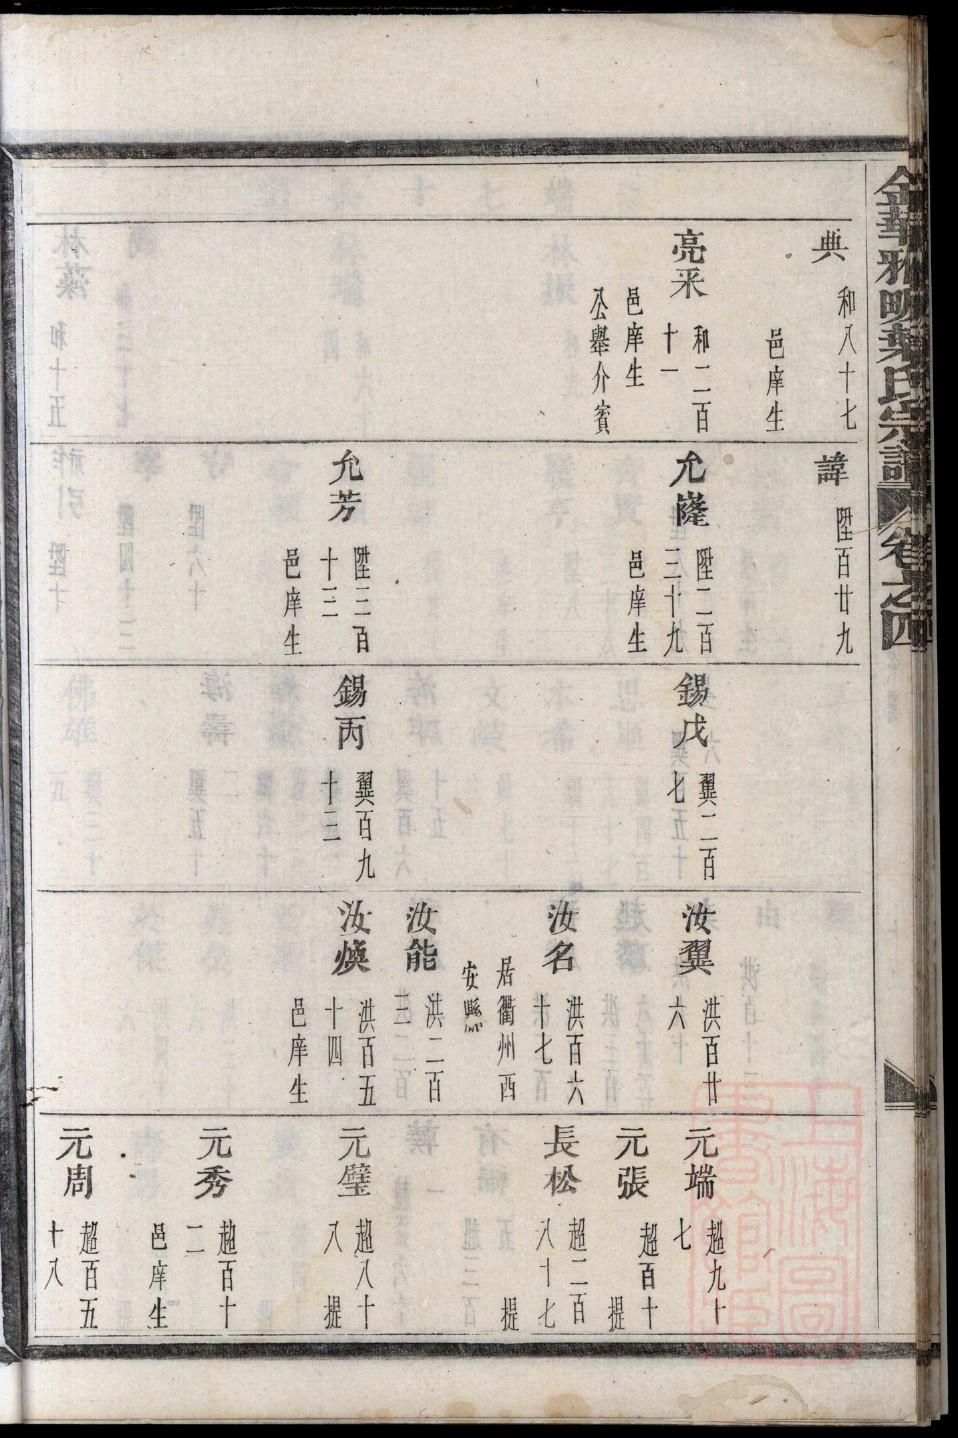 金華雅畈葉氏宗譜 卷之四
典 和八十七
邑庠生
亮采 和二百
十一
邑庠生
公舉介賓
諱 陞百廿九
允嶐 陞二百
三十九
邑庠生
允芳 陞三百
十三
邑庠生
錫戊 翼二百
七
錫丙 翼百九
十三
汝翼 洪百廿
六
汝名 洪百六
十七
居衢州西
安縣
汝能 洪二百
三
汝煥 洪百五
十四
邑庠生
元端 超九十
七
元張 超百十
提
長松 超二百
八十七
提
元璧 超八十
八 提
元秀 超百十
二
邑庠生
元周 超百五
十八
上海圖書館藏